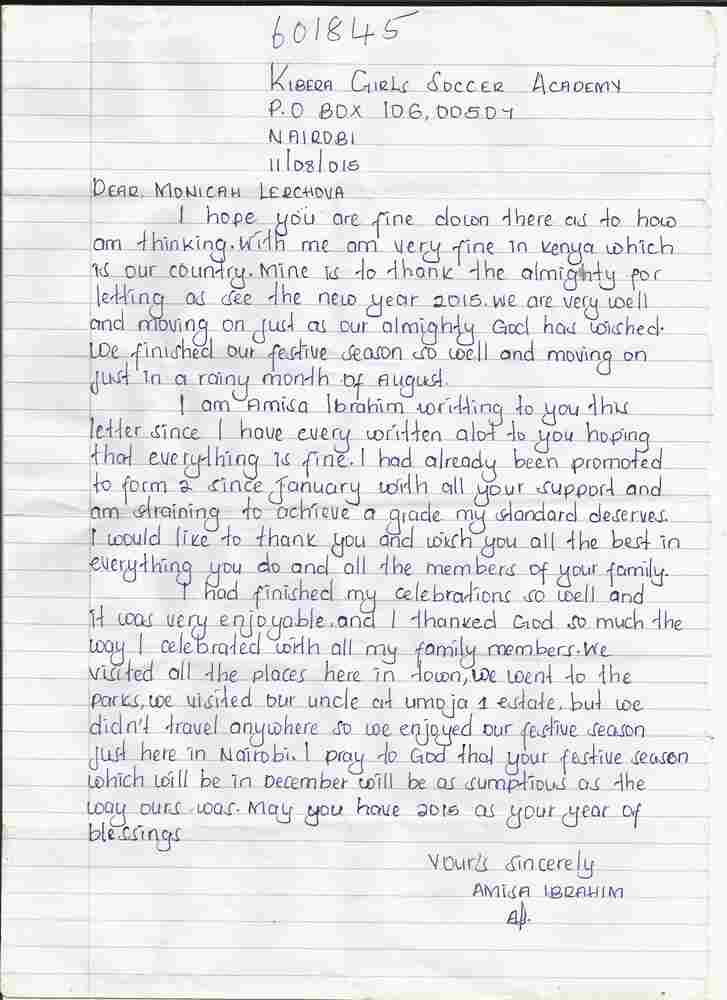 601845
KIBERA GIRLS SOCCER ACADEMY
P.O BOX 106,00507
NAIROBI
11/08/015
DEAR, MONICAH LERCHOVA
I hope you are fine down there as to how
am thinking. With me am very fine in Kenya which
is our country. Mine is to thank the almighty for
letting as see the new year 2015. We are very well
and moving on just as our almighty God has wished.
We finished our festive season so well and moving on
just in a rainy month of August.
I am Amisa Ibrahim writting to you this
letter since I have every written alot to you hoping
that everything is fine. I had already been promoted
to form 2 since January with all your support and
am straining to achieve a grade my standard deserves.
I would like to thank you and wish you all the best in
everything you do and all the members of your family.
I had finished my celebrations so well and
it was very enjoyable. and I thanked God so much the
way I celebrated with all my family members. We
visited all the places here in town, we went to the
parks, we visited our uncle at umoja 1 estate, but we
didn't travel anywhere so we enjoyed our festive season
just here in Nairobi. I pray to God that your festive season
which will be in December will be as sumptious as the
way ours was. May you have 2015 as your year of
blessings
Your's sincerely
AMISA IBRAHIM